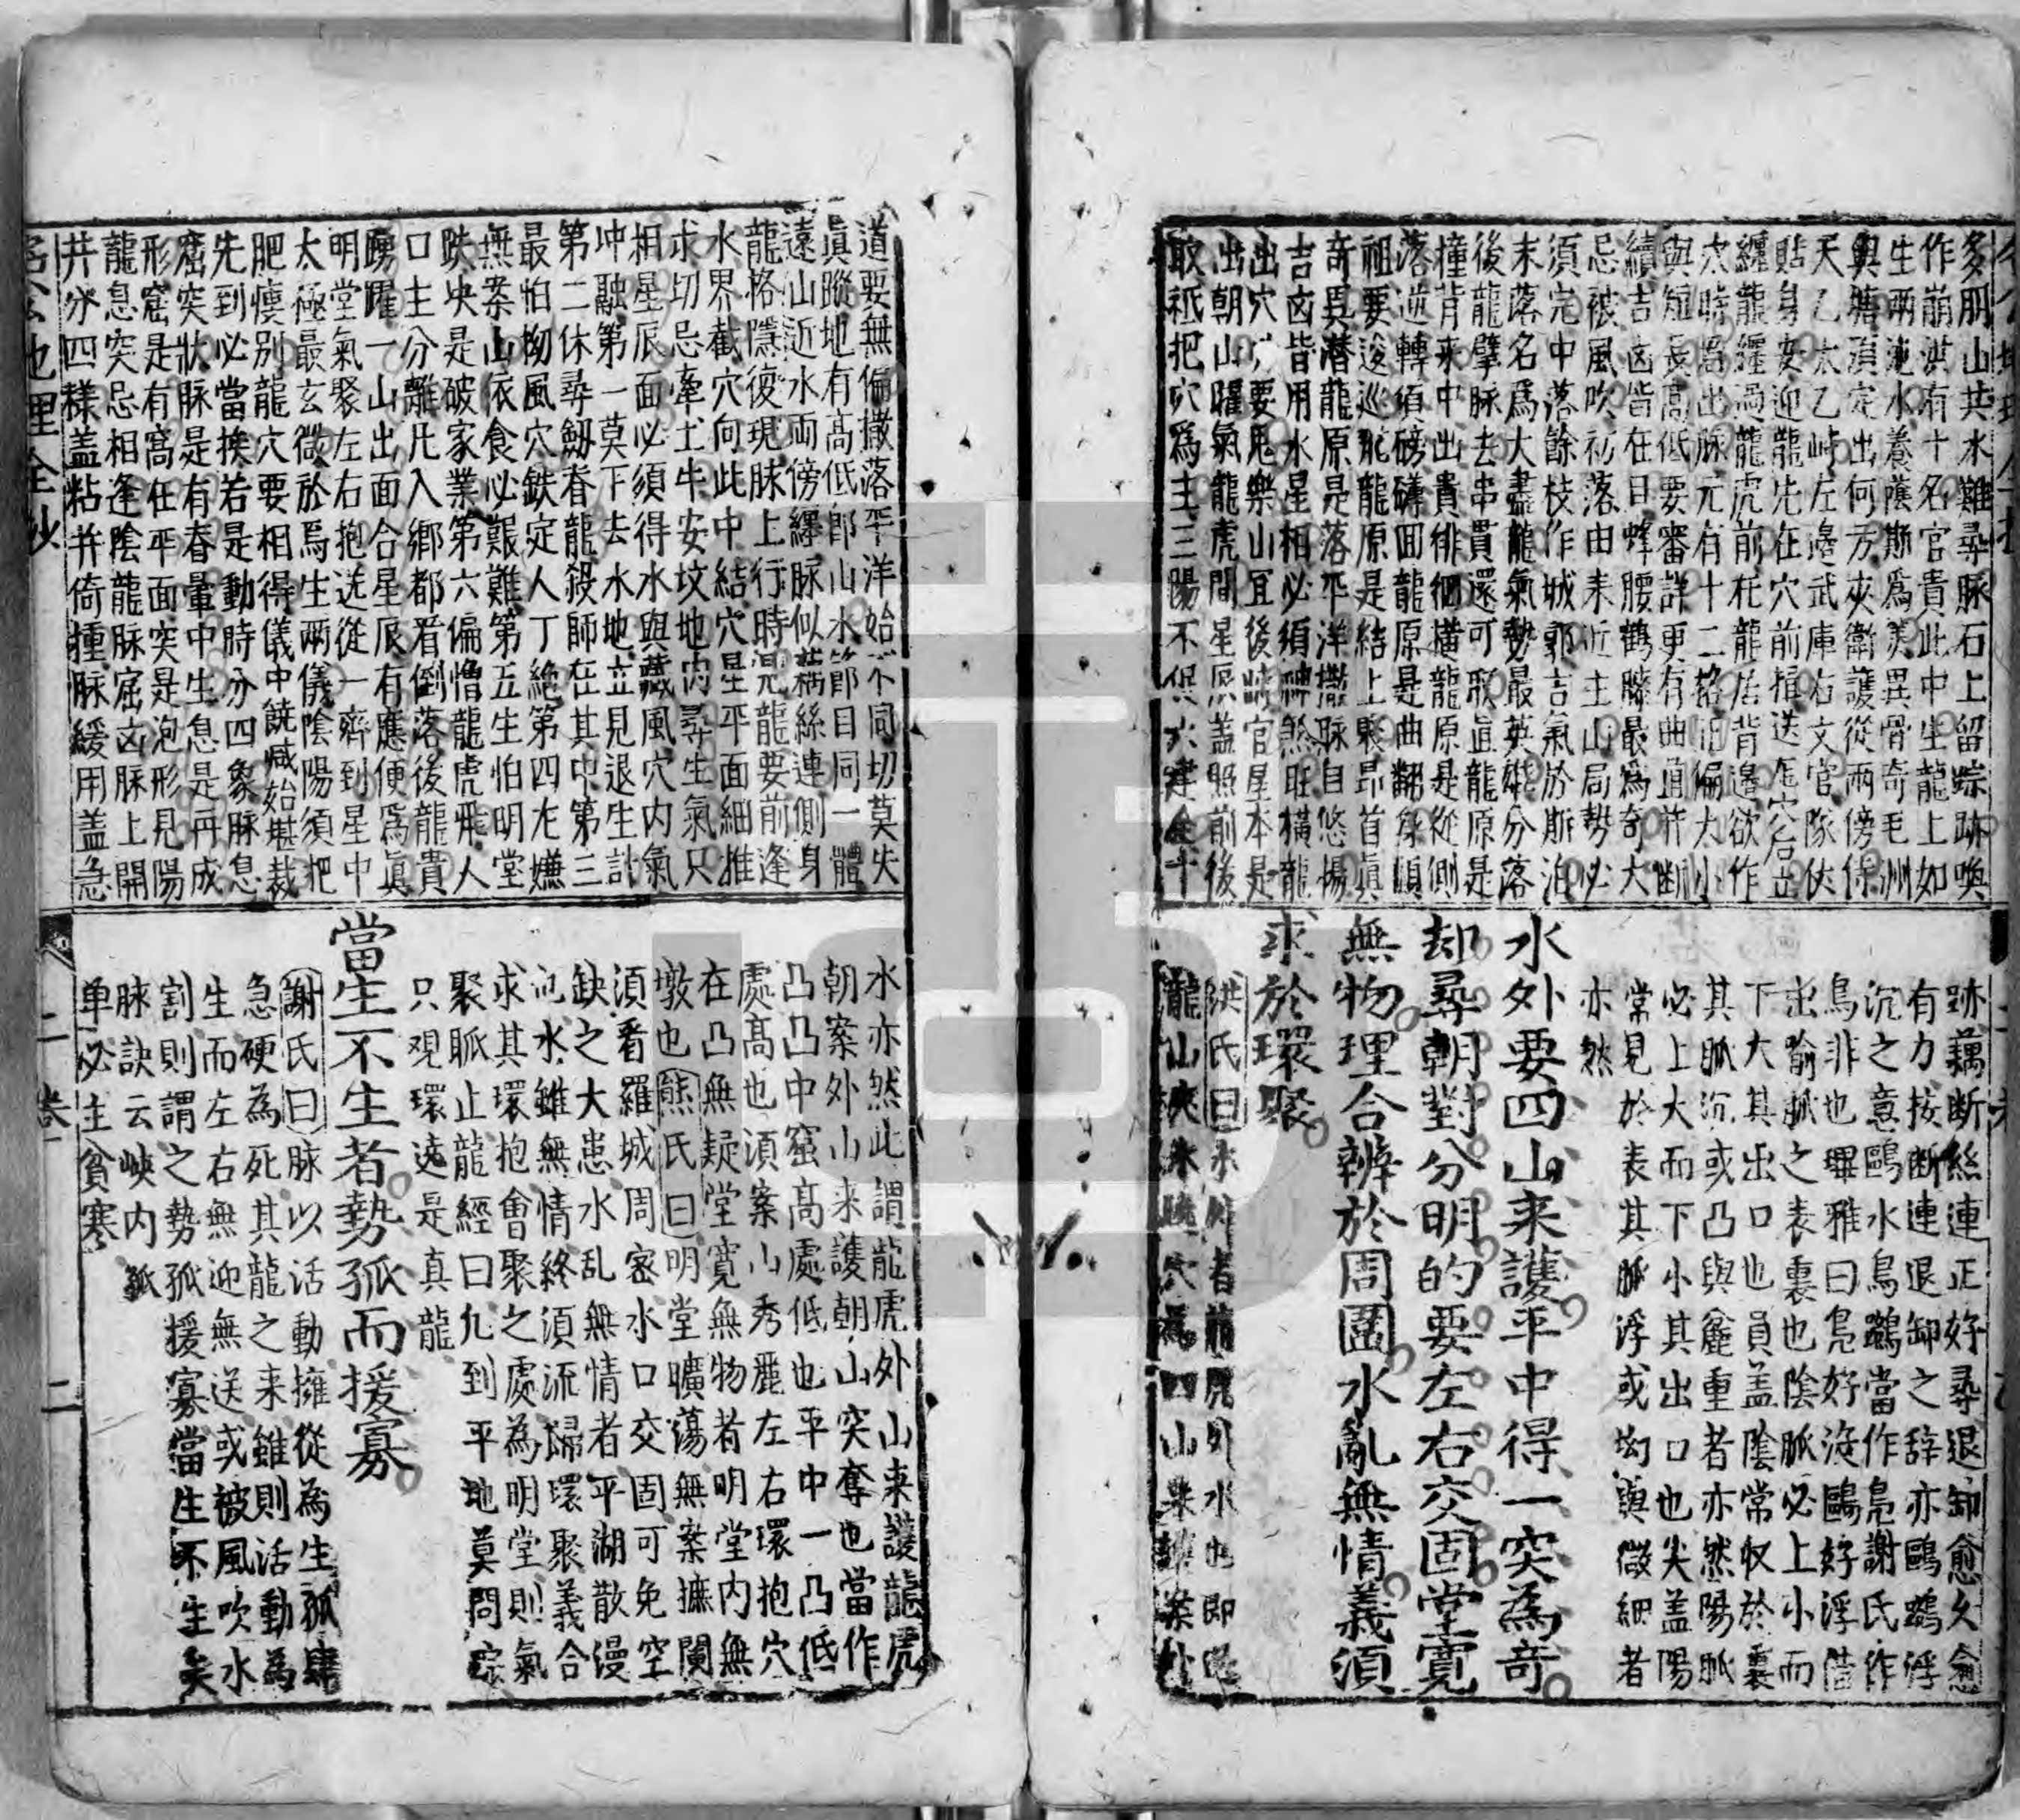 多胴山共水難尋脉石上留踪跡喚
作崩洪有十名官貴此中生龍上如
生兩池水養蔭斯爲美異骨奇毛洲
與墻須定出何方夾衛護從兩傍侍
天乙太乙峙左邊武庫右文官隊伏
貼身安迎龍先在穴前揖送龍穴後立
纏龍纏過龍虎前托龍居背邊欲作
穴時爲出脉元有十二格正偏大小
與短長高低要審詳更有曲直許断
續吉凶皆在目蜂腰鶴膝最爲奇大
忌被風吹初落由来近主山局勢必
須完中落餘枝作城郭吉氣於斯泊
末落名爲大盡龍氣勢最英雄分落
後龍擘脉去串貫還可取直龍原是
撞背来中出貴徘徊橫龍原是從側
落逆轉須磅礴回龍原是曲翻身顧
祖要逡巡飛龍原是結上聚昂首眞
奇異潜龍原是落平洋撒脉自悠揚
吉凶皆用水星相必須神煞旺橫龍
出穴要鬼樂山宜後峙官星本是
出朝山曜氣龍虎間星辰盖照前後
取祗把穴爲主三陽不促六建全十
跡藕断絲連正好尋退卸愈久愈
有力按断連退卸之辞亦鷗鷀浮
沉之意鷗水鳥鷀當作鳧謝氏作
鳥非也㻫雅曰鳧好没鷗好浮借
出喻脈之表裏也陰脈必上小而
下大其出口也員盖陰常収於裏
其脈沉或凸與麄重者亦然陽脈
必上大而下小其出口也尖盖陽
常見於表其脈浮或坳與微細者
亦然
水外要四山来護平中得一突為奇
却尋朝對分明的要左右交固堂寛
無物理合辨於周圍水亂無情義須
求於環聚
洪氏曰水外者龍虎外水也即
道要無偏撒落平洋始不同切莫失
眞蹤地有高低郎山水節節目同一體
遠山近水両傍纒脉似藕絲連側身
龍格隱復現脉上行時混龍要前逢
水界截穴向此中結穴星平面細推
求切忌牽土牛安墳地内尋生氣只
相星辰面必須得水與藏風穴内氣
坤融第一莫下去水地立見退生計
第二休尋劔脊龍殺師在其中第三
最怕坳風穴鉄定人丁絶第四尤嫌
無案山依食必艱難第五生怕明堂
跌坱是破家業第六偏憎龍虎飛人
口主分離凡入鄉都看倒落後龍貴
踴躍一山出面合星辰有應便爲眞
明堂氣聚左右抱送從一齊到星中
太極最玄微於焉生兩儀陰陽須把
肥瘐別龍穴要相得儀中饒減始堪裁
先到必當挨若是動時分四象脉息
窟突狀脉是有脊暈中生息是再成
形窟是有窩在平面突是泡形見陽
龍息突忌相逢陰龍脉窟凶脉上開
井分四様盖粘并倚撞脉緩用盖急
水亦然此謂龍虎外山来護龍虎
朝案外山来護朝山突奪也當作
凸凸中窟高處低也平中一凸低
處高也須案山秀麗左右環抱穴
在凸無疑堂寛無物者明堂内無
墩也熊氏曰明堂曠蕩無案攠闌
須看羅城周密水口交固可免空
缺之大患水乱無情者平湖散漫
氾水雖無情終須流歸環聚義合
求其環抱會聚之處為明堂則氣
聚脈止龍經曰九到平地莫問踪
只观環遶是真龍
當生不生者勢孤而援寡
謝氏曰脉以活動擁從為生孤單
急硬為死其龍之来雖則活動為
生而左右無迎無送或被風吹水
割則謂之勢孤援寡當生不生矣
脉訣云峽内孤
単必主貧寒
二卷
二